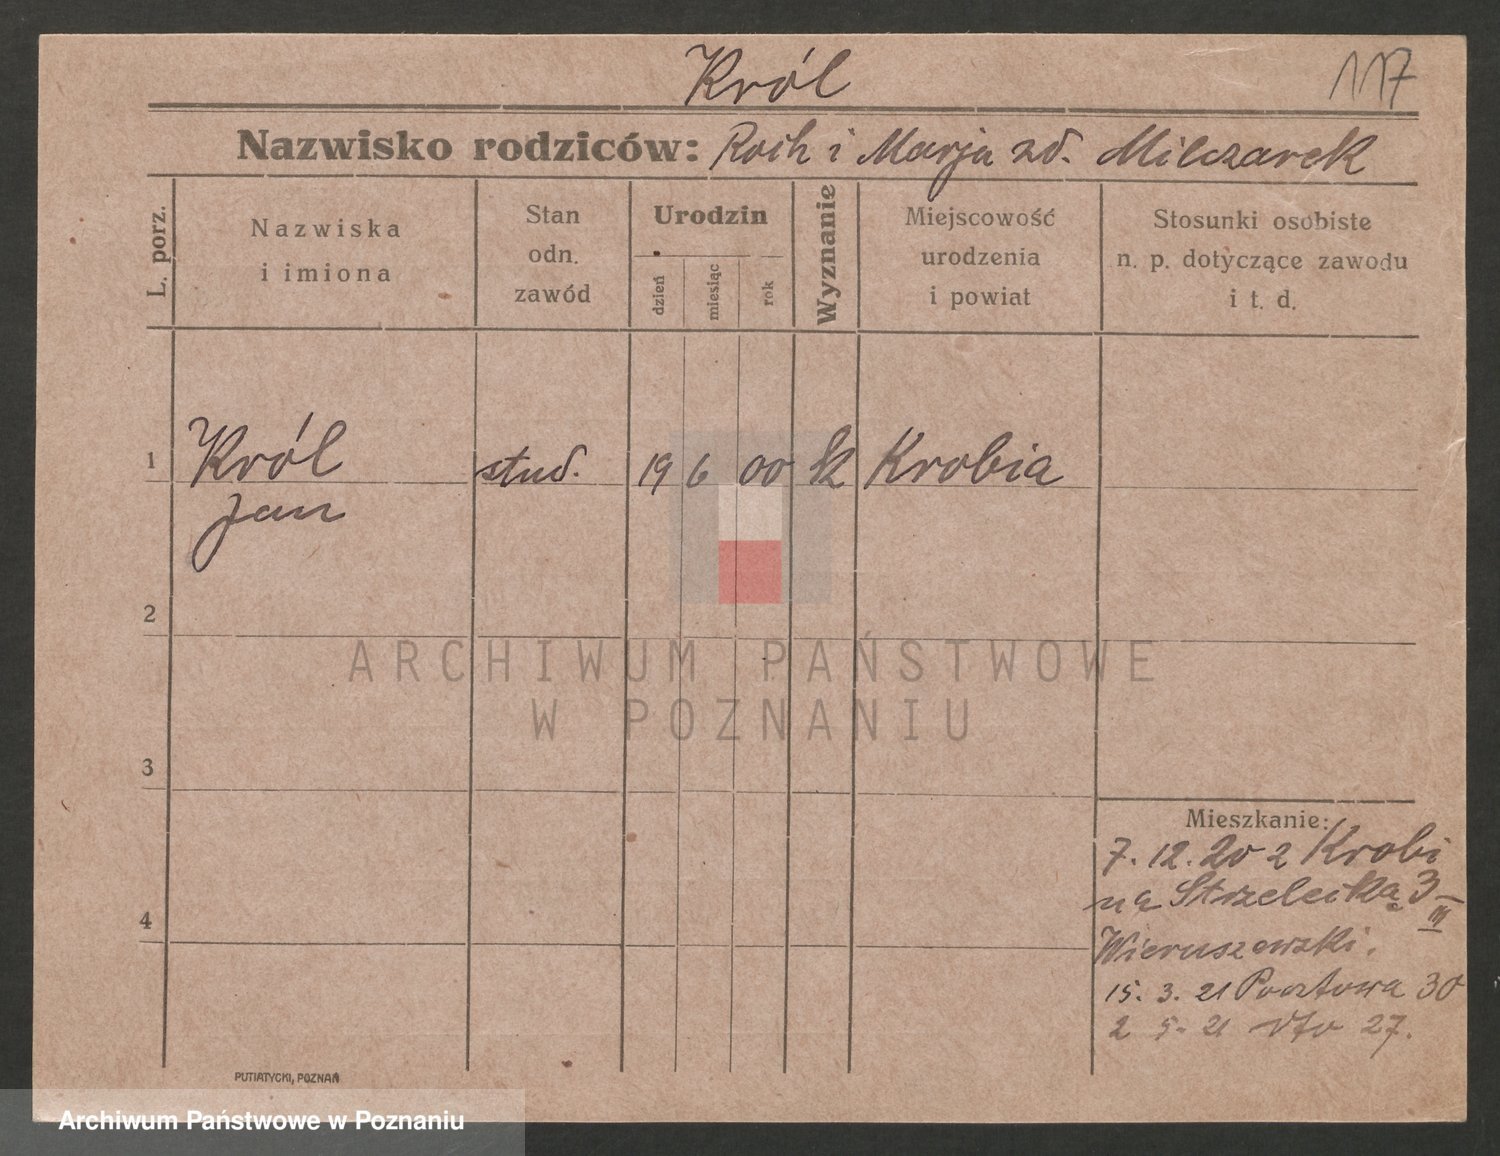 Król
117
Nazwisko rodziców: Roch i Marja zd. Milczarek
L. porz.
Nazwiska
i imiona
Stan
odn.
zawód
Urodzin
dzień
miesiąc
rok
Wyznanie
Miejscowość
urodzenia
i powiat
Stosunki osobiste
n. p. dotyczące zawodu
i t. d.
1
Król
Jan
stud.
19 6 00 k Krobia
2
3
4
Mieszkanie:
7. 12. 20 z Krobi
na Strzelecką 3
III
Wieruszewski.
15. 3. 21 Pocztowa 30
2 5. 21 dto 27.
PUTIATYCKI, POZNAŃ
ARCHIWUM PAŃSTWOWE
W POZNANIU
Archiwum Państwowe w Poznaniu